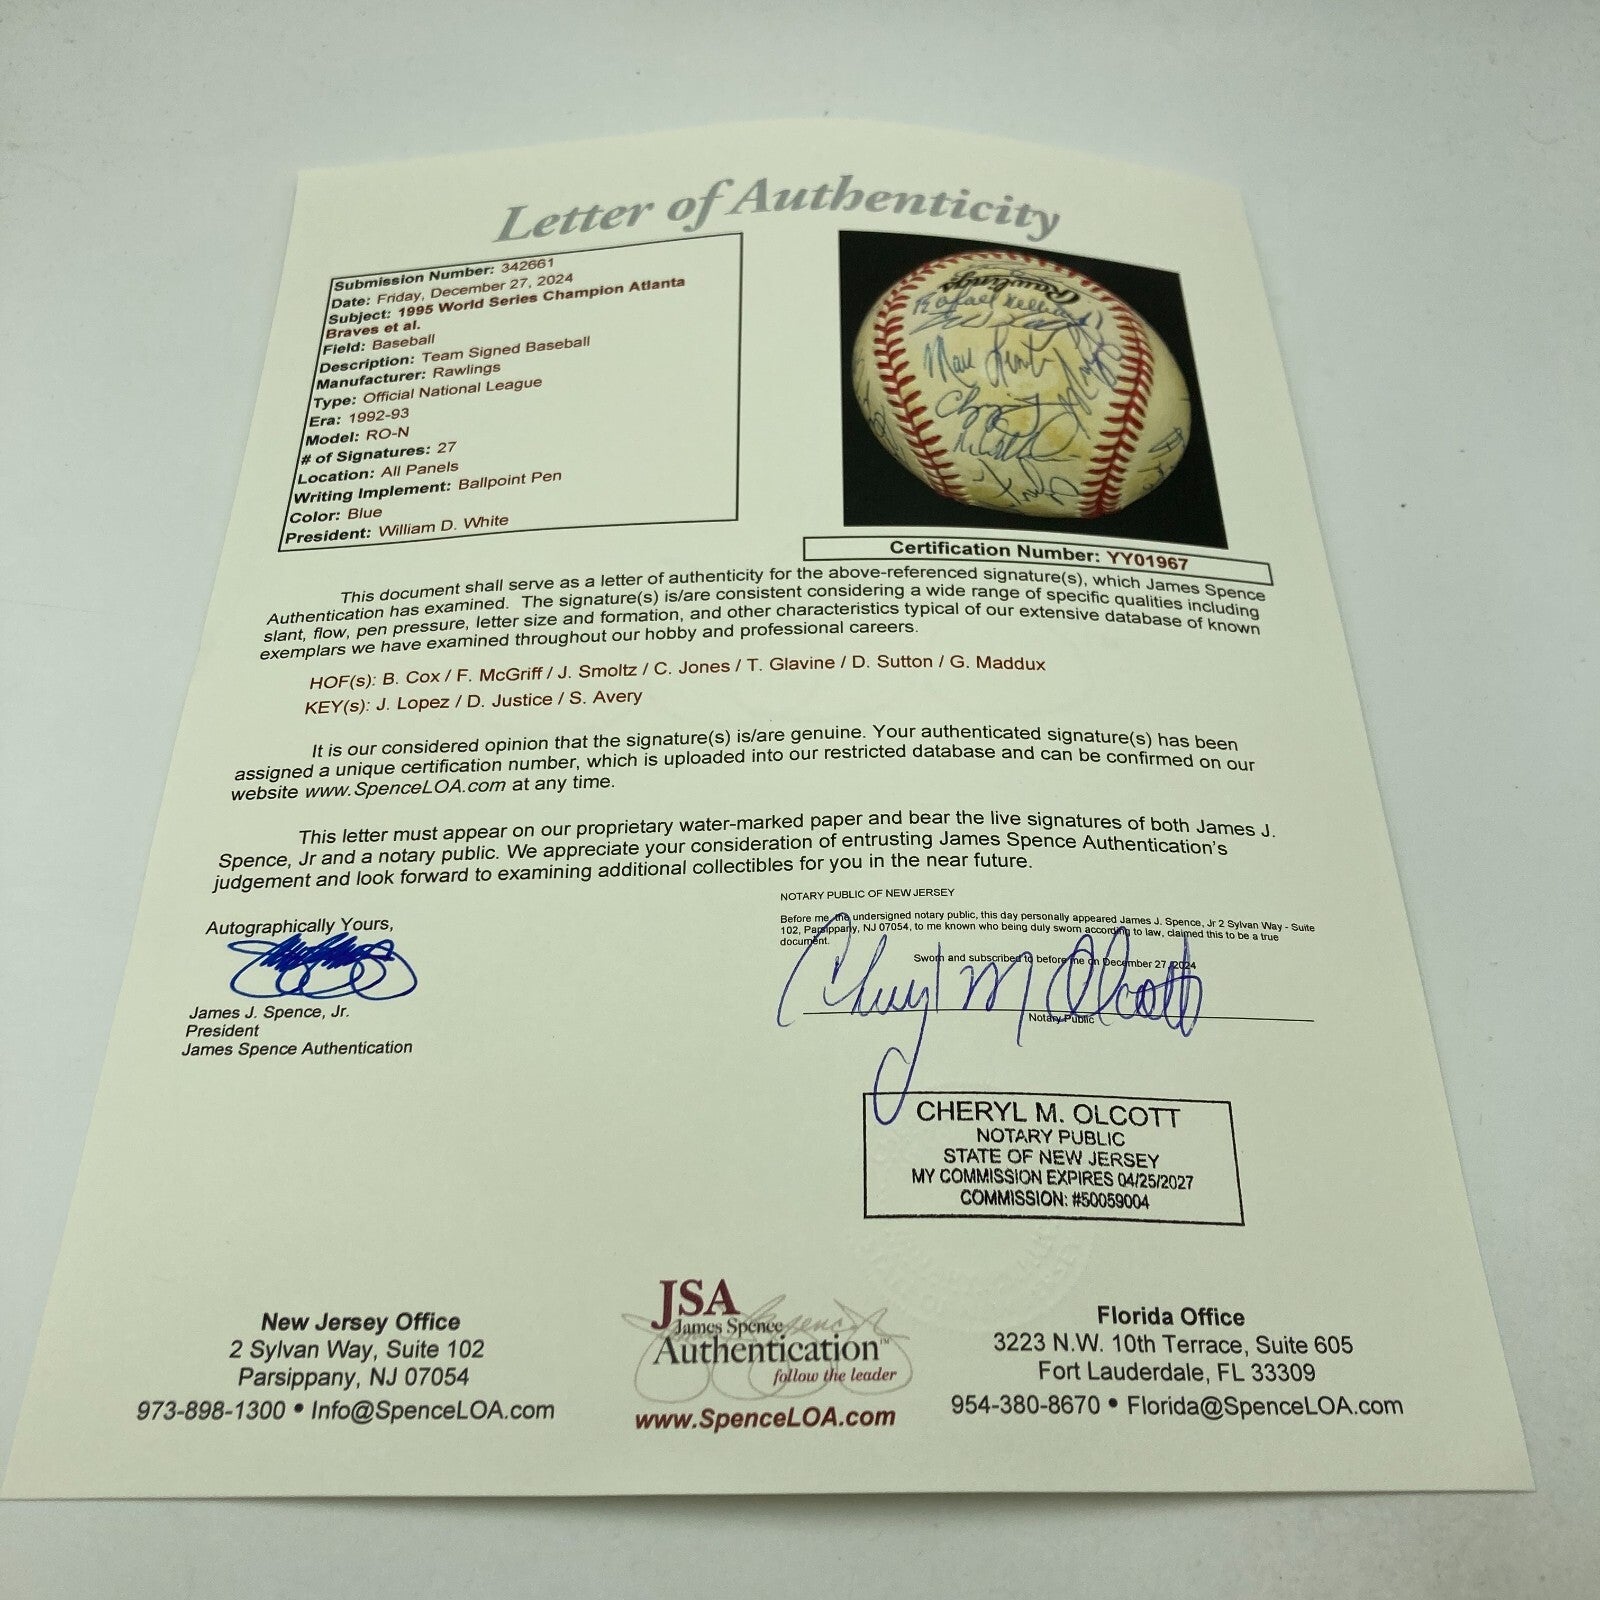 Letter of Authenticity
Submission Number: 342661
Date: Friday, December 27, 2024
Subject: 1995 World Series Champion Atlanta
Braves et al.
Field: Baseball
Description: Team Signed Baseball
Manufacturer: Rawlings
Type: Official National League
Era: 1992-93
Model: RO-N
# of Signatures: 27
Location: All Panels
Writing Implement: Ballpoint Pen
Color: Blue
President: William D. White
Rawlings
Rafael
Chipper
Certification Number: YY01967
This document shall serve as a letter of authenticity for the above-referenced signature(s), which James Spence
Authentication has examined. The signature(s) is/are consistent considering a wide range of specific qualities including
slant, flow, pen pressure, letter size and formation, and other characteristics typical of our extensive database of known
exemplars we have examined throughout our hobby and professional careers.
HOF(s): B. Cox / F. McGriff / J. Smoltz / C. Jones / T. Glavine / D. Sutton / G. Maddux
KEY(s): J. Lopez / D. Justice / S. Avery
It is our considered opinion that the signature(s) is/are genuine. Your authenticated signature(s) has been
assigned a unique certification number, which is uploaded into our restricted database and can be confirmed on our
website www.SpenceLOA.com at any time.
This letter must appear on our proprietary water-marked paper and bear the live signatures of both James J.
Spence, Jr and a notary public. We appreciate your consideration of entrusting James Spence Authentication's
judgement and look forward to examining additional collectibles for you in the near future.
Autographically Yours,
James J. Spence, Jr.
President
James Spence Authentication
NOTARY PUBLIC OF NEW JERSEY
Before me, the undersigned notary public, this day personally appeared James J. Spence, Jr 2 Sylvan Way - Suite
102, Parsippany, NJ 07054, to me known who being duly sworn according to law, claimed this to be a true
document.
Sworn and subscribed to before me on December 27, 2024
Cheryl M Olcott
Notary Public
CHERYL M. OLCOTT
NOTARY PUBLIC
STATE OF NEW JERSEY
MY COMMISSION EXPIRES 04/25/2027
COMMISSION: #50059004
New Jersey Office
2 Sylvan Way, Suite 102
Parsippany, NJ 07054
973-898-1300 • Info@SpenceLOA.com
JSA
James Spence
Authentication™
follow the leader
www.SpenceLOA.com
Florida Office
3223 N.W. 10th Terrace, Suite 605
Fort Lauderdale, FL 33309
954-380-8670 • Florida@SpenceLOA.com